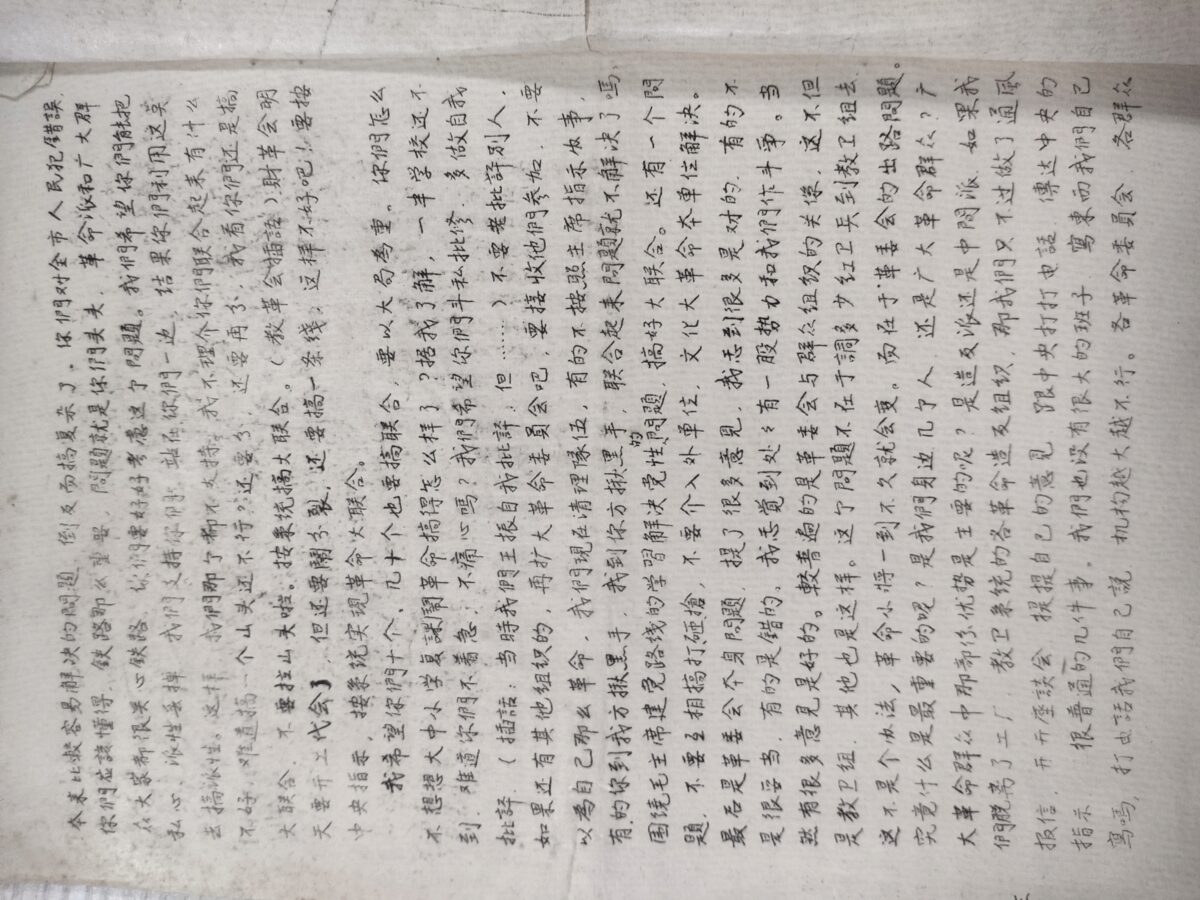 本来比較容易解决的問題，倒反而搞复杂了。你們对全市人民犯錯誤，
你們应該懂得，鉄路那么重要，問題就是你們头头，革命派和广大群
众大家都很关心鉄路，你們要好好考慮这个問題。我們希望你們能把
私心、派性丢掉，我們支持你們，站在你們一边，结果你們利用这
去搞派性。这样，我們那个都不支持，我不理介你們联合起来有什么
不好，难道搞一个山头还不行？还要分，还要再分，我看你們还是搞
大联合，不要拉山头啦。按系统搞大联合。（教革会插話）財革会明
天要开工代会了，但还要鬧分裂，还要搞一条线，这样不好吧！要按
中央指示，按系统实現革命大联合。
我希望你們十个、几十个也要搞联合，要以大局為重。你們怎么
不想想大中小学复課鬧革命搞得怎么样了？据我了解，一半学校还不
到，难道你們不着急，不痛心嗎？我們希望你們斗私批修，多做自我
批評，（插話：当時我們王振自我批評，但……）不要老批評別人，
如果还有其他组织的，再扩大革命委員会吧，要接收他們参加，不要
以為自己那么革命，我們現在清理隊伍，有的不按照主席指示办事，
有的你到我方揪黑手，我到你方揪黑手，联合起来問題就不解决了嗎，
围绕毛主席建党路线的学習解决党性的問題，搞好大联合。还有一个問
題，不要互相搞打砸搶，不要介入外单位，文化大革命本单位解决。
最后是革委会本身問題，提了很多意見，我忢到很多是对的，有的不
是很妥当，有的是錯的。我忢觉到处々有一股势力和我們作斗爭。当
然有很多意見是好的。較普遍的是革委会与群众组织的关係，这不但
是教卫组，其他也是这样。这个問題不在于調多少红卫兵到教卫组去，
这不是个办法，革命小将一到不久就会变。而在于革委会的出路問題。
究竟什么是最重要的呢？是我們身边几个人，还是广大革命群众？广
大革命群众中那部份优势是主要的呢？是造反派还是中間派，如果我
們脱离了工厂，教卫系统的各革命造反组织，那我們只不过做了通風
报信，开开座談会，提提自己的意見，跟中央打打电話，傳达中央的
指示，很普通的几件事。我們也没有很大的班子，寫東西我們自己
寫嗎，打电話我們自己説，机构越大越不行。各革命委員会，各群众